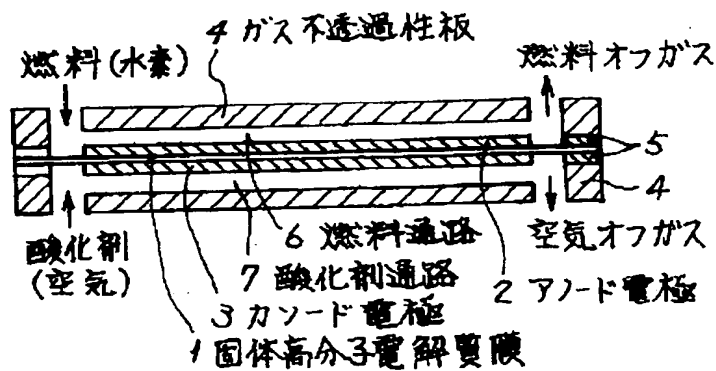 4 ガス不透過性板
燃料(水素)
燃料オフガス
5
4
酸化剤
(空気)
6 燃料通路
空気オフガス
7 酸化剤通路
2 アノード電極
3 カソード電極
1 固体高分子電解質膜